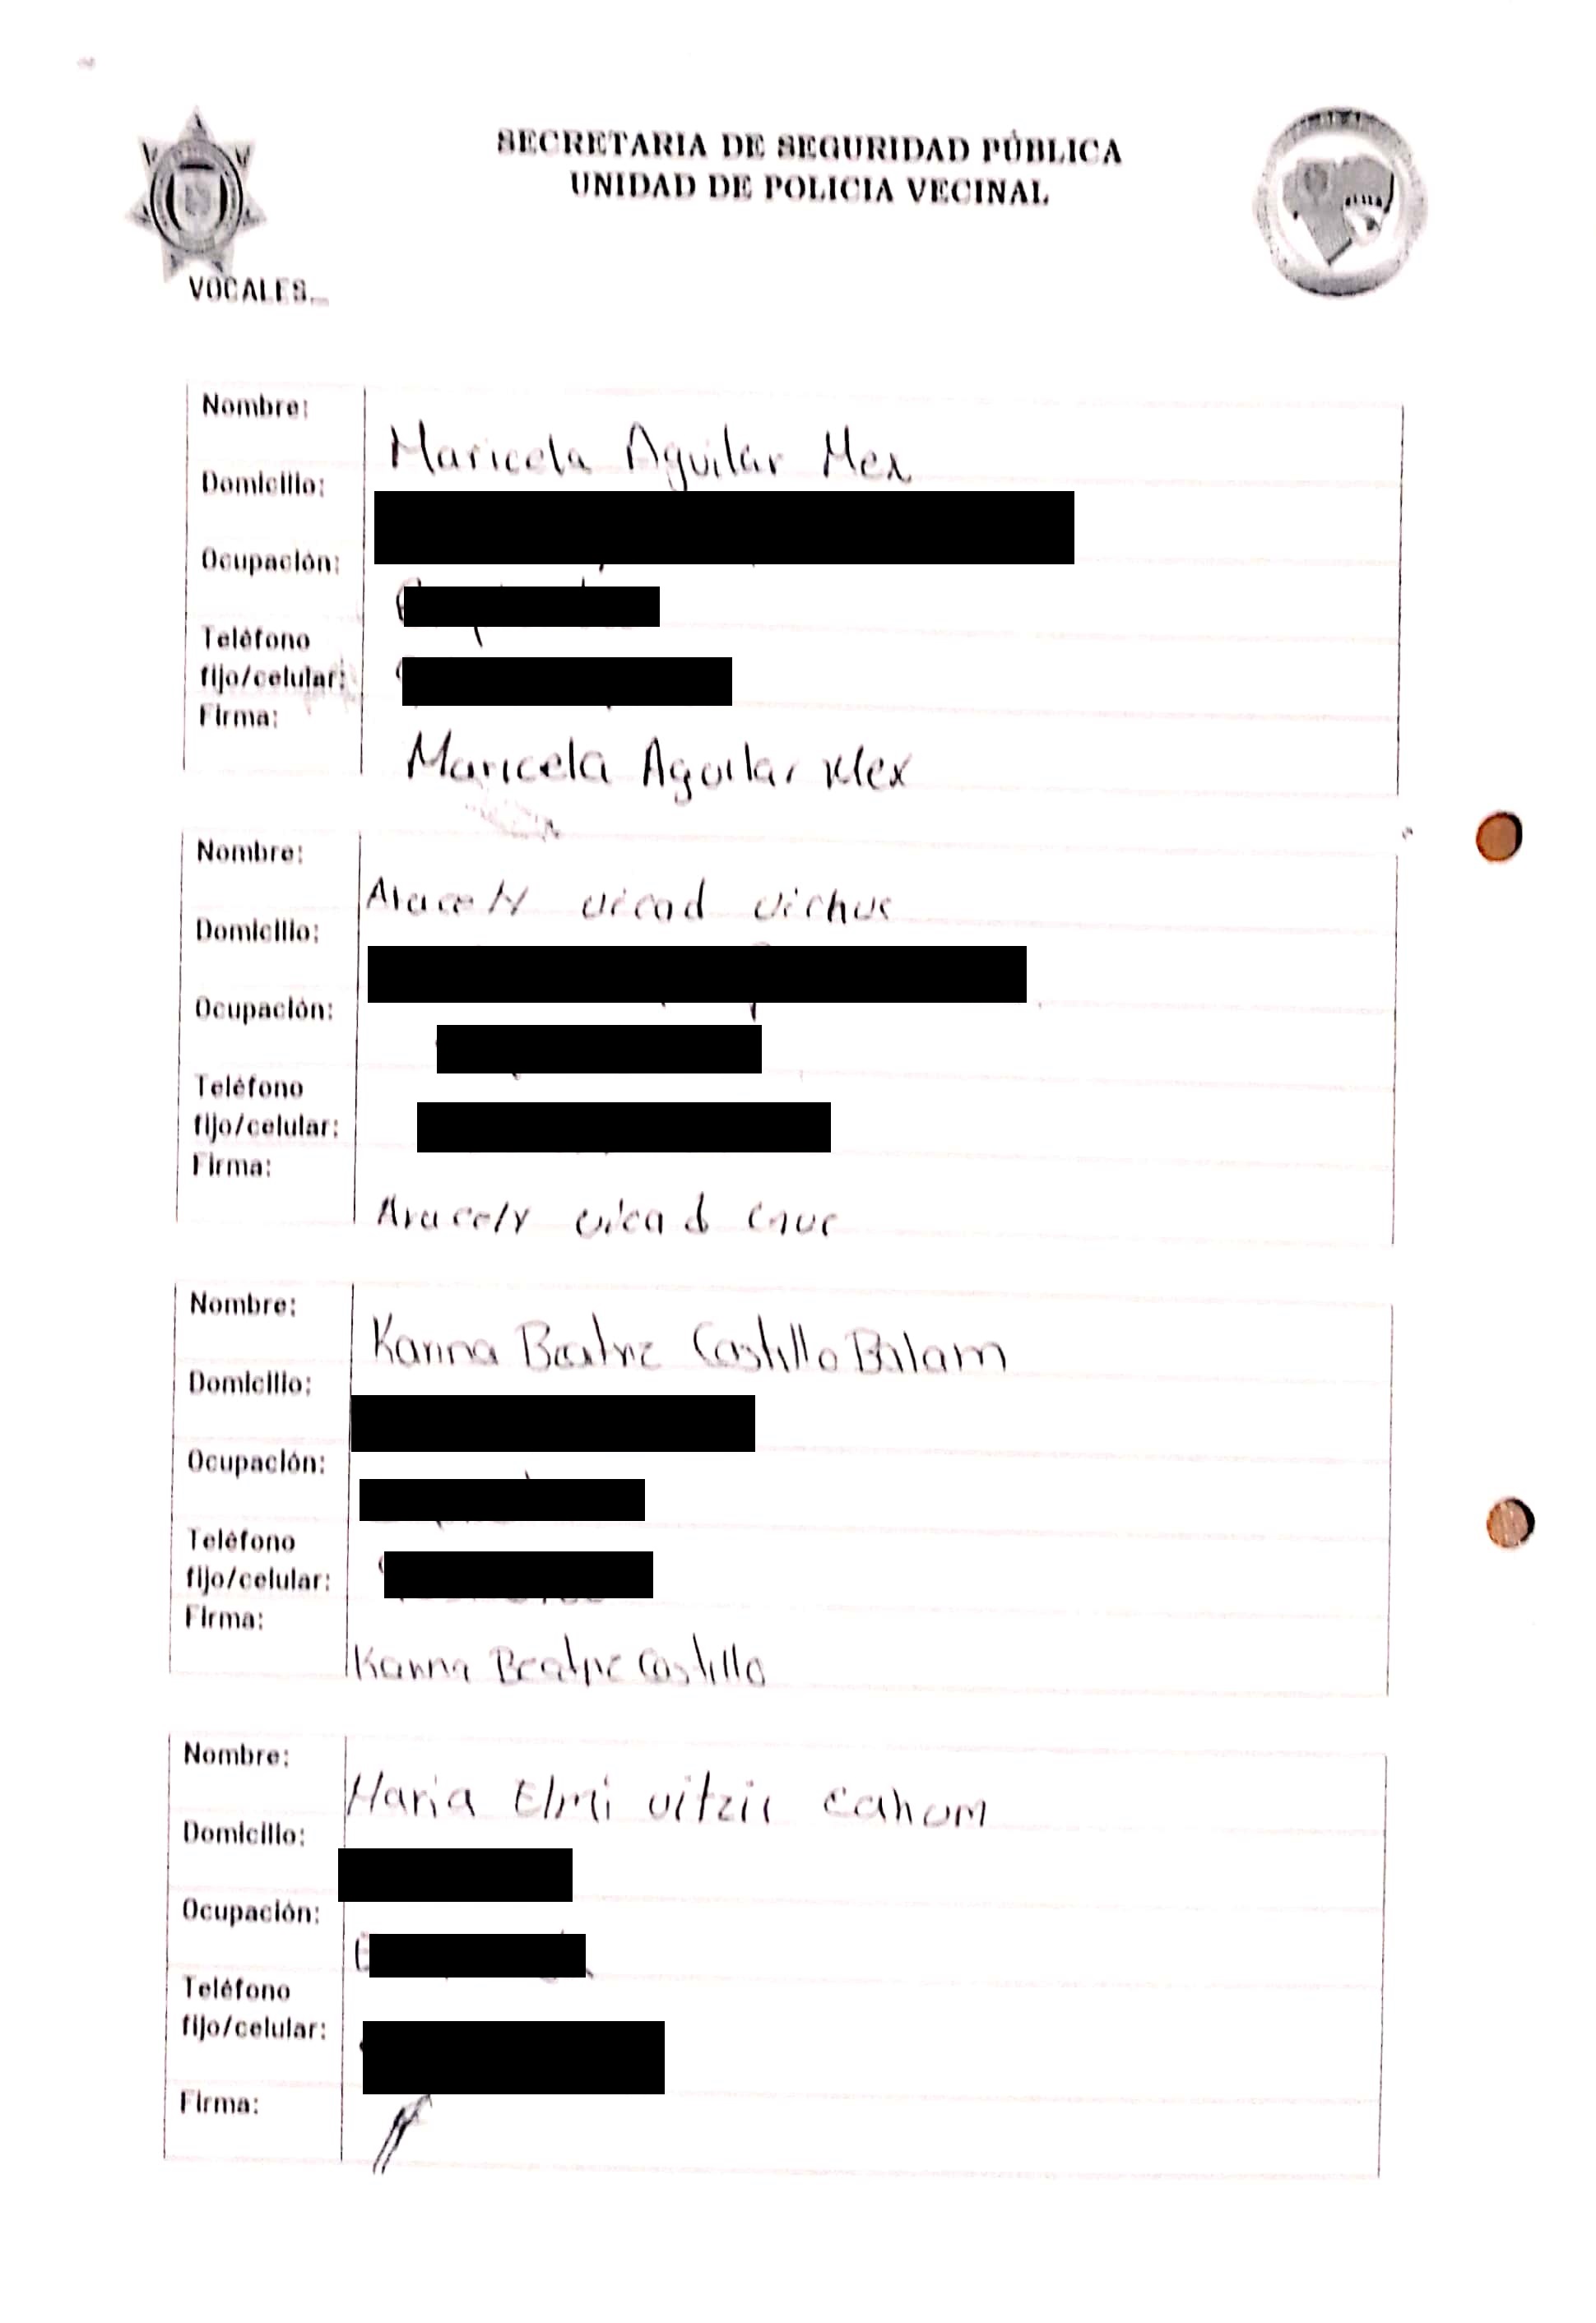 SECRETARIA DE SEGURIDAD PÚBLICA
UNIDAD DE POLICIA VECINAL
VOCALES
Nombre:
Maricela Aguilar Mex
Domicilio:
Ocupación:
Teléfono
fijo/celular:
Firma:
Maricela Aguilar Mex
Nombre:
Aracely uicad
Domicilio:
Ocupación:
Teléfono
fijo/celular:
Firma:
Aracely uicad
Nombre:
Karina Beatriz Castillo Balam
Domicilio:
Ocupación:
Teléfono
fijo/celular:
Firma:
Karina Beatriz Castillo
Nombre:
Maria Elmi uitzil cahum
Domicilio:
Ocupación:
Teléfono
fijo/celular:
Firma: